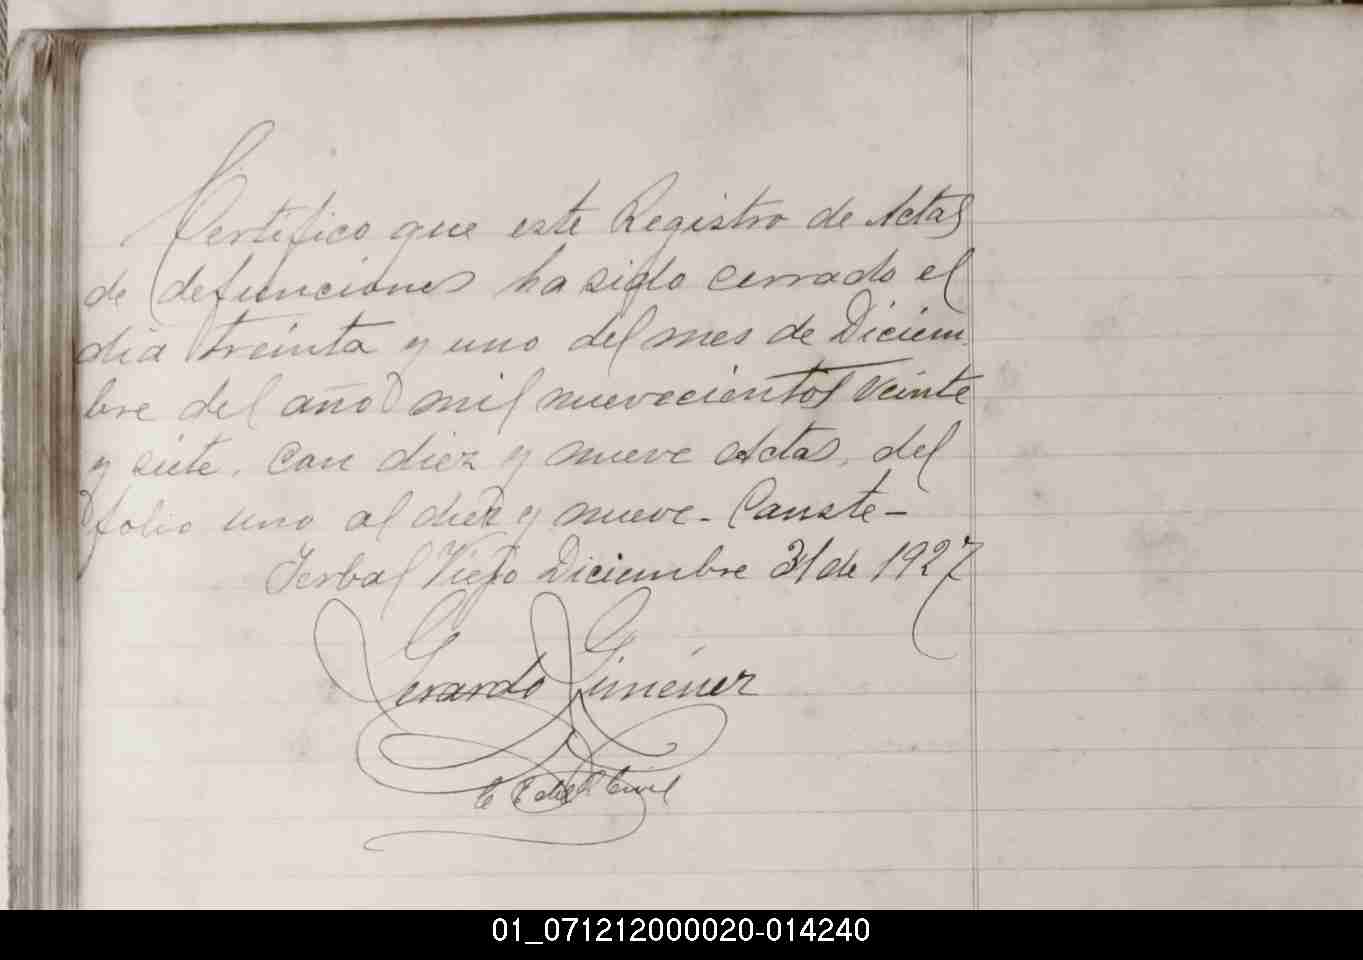 Certifico que este Registro de Actas
de defunciones ha sido cerrado el
dia treinta y uno del mes de Diciem
bre del año mil nuevecientos veinte
y siete, con diez y nueve Actas, del
folio uno al diez y nueve - Conste -
Yerbal Viejo Diciembre 31 de 1927
Gerardo Giménez
E. E. del E. Civil
01_071212000020-014240